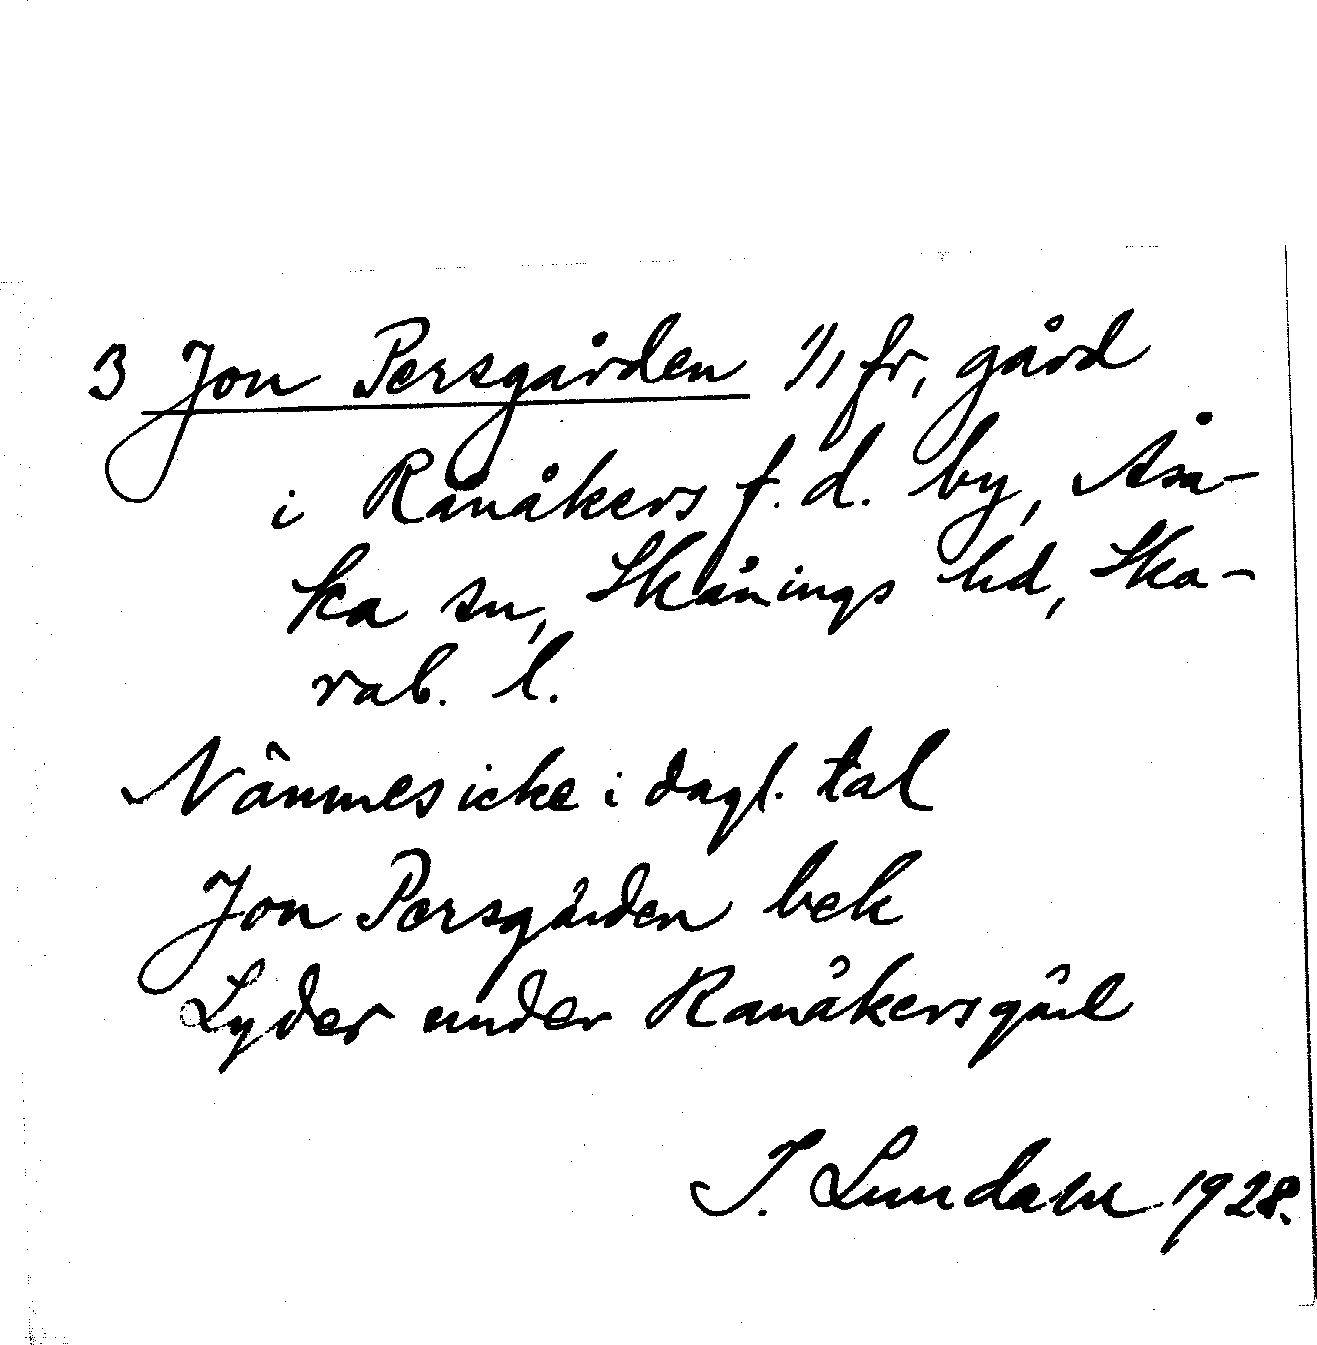 3 Jon Persgården 1/1 fr, gård
i Ranåkers f.d. by, Åsa-
ka sn, Skånings hd, Ska-
rab. l.
Nämnes icke i dagl. tal
Jon Persgården bek
Lyder under Ranåkersgål
I. Lundahl 1928.